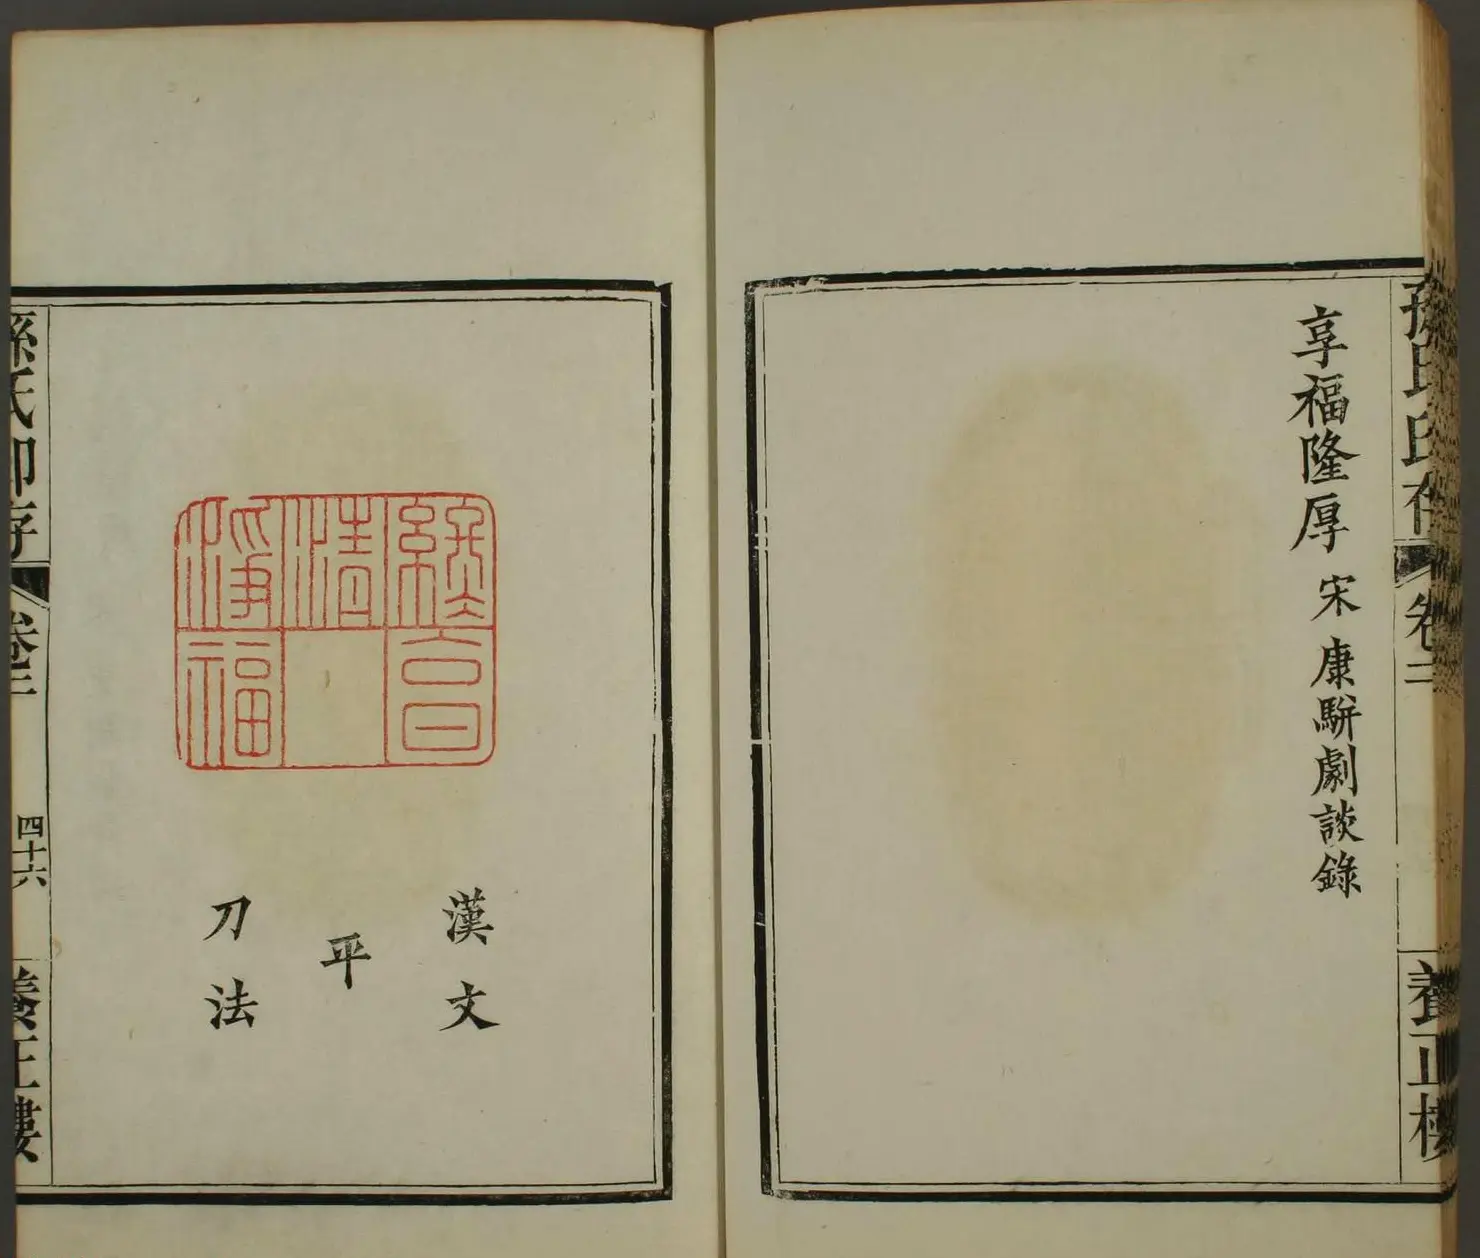 孫氏印存 卷 養正樓
享福隆厚 宋 康駢劇談錄
享
清
淨福
漢文
平
刀法
孫氏印存 卷 四十六 養正樓